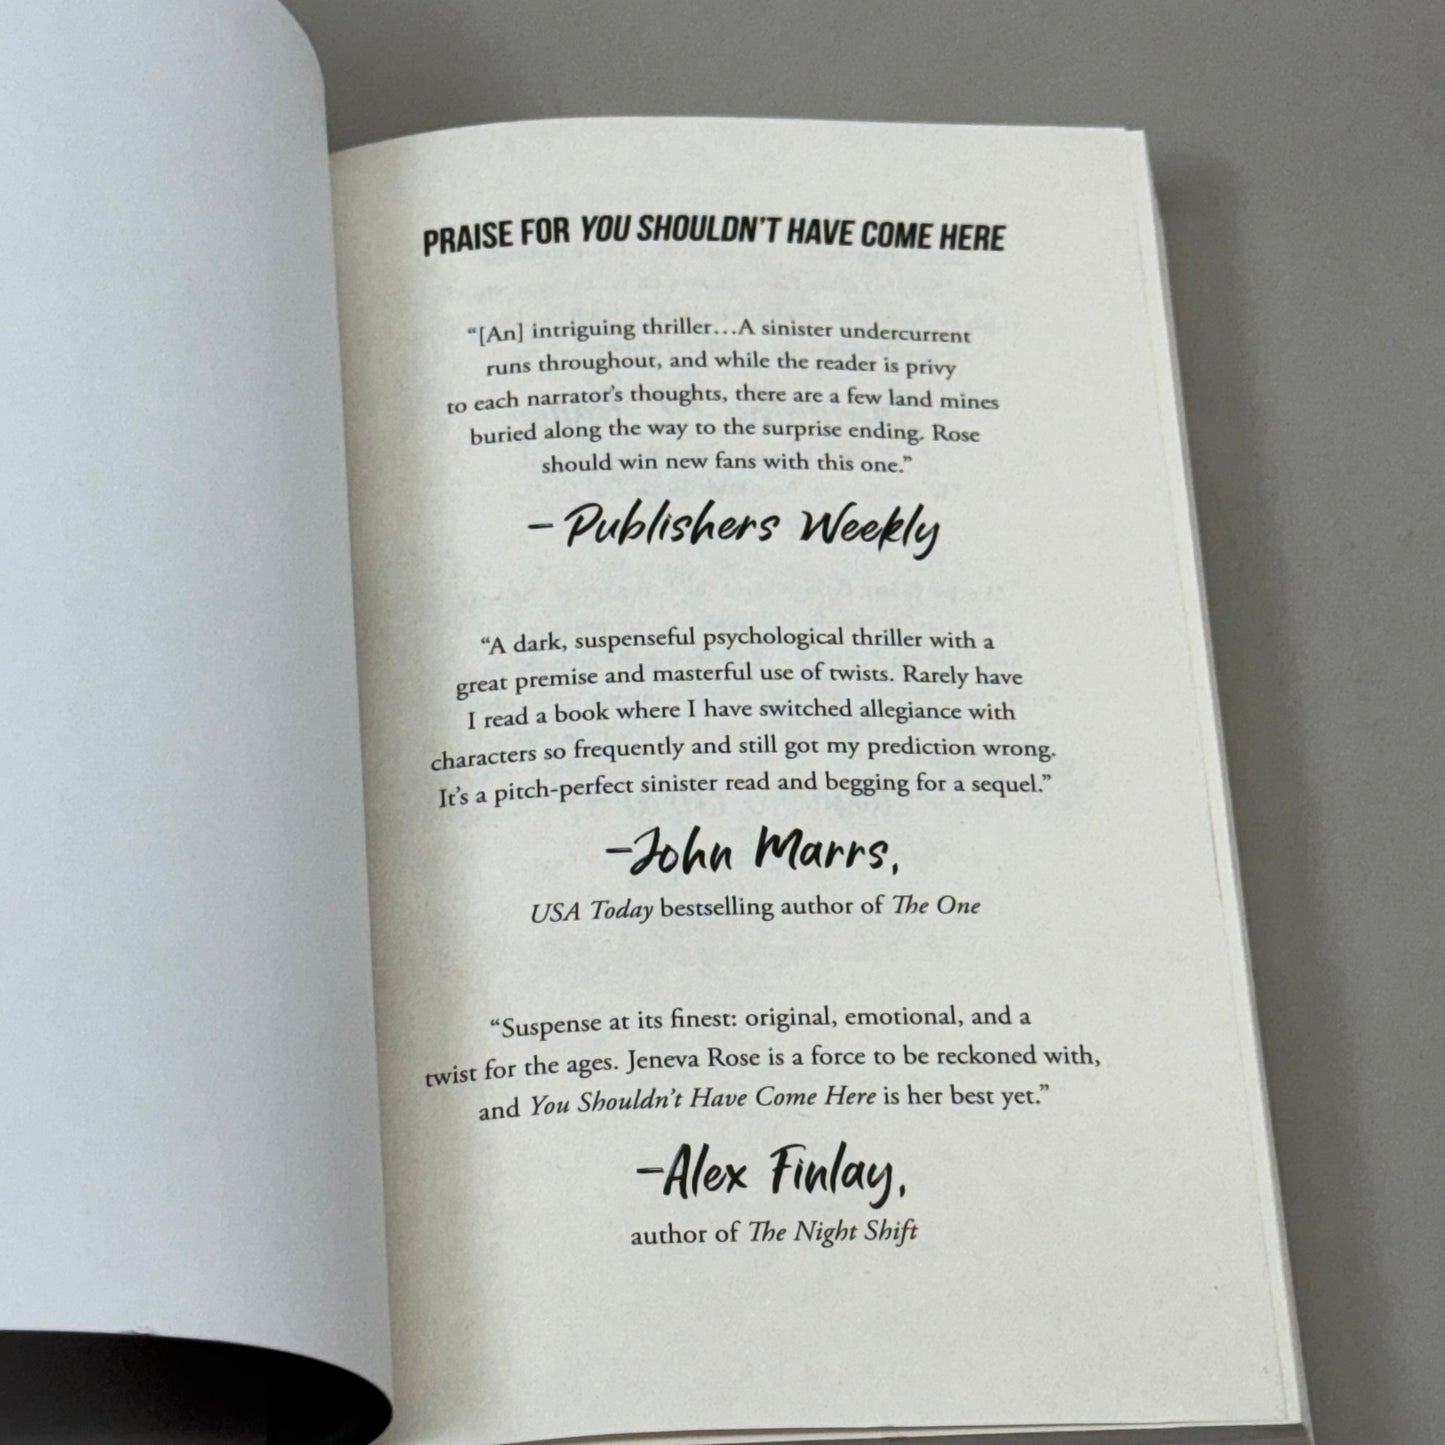 PRAISE FOR YOU SHOULDN'T HAVE COME HERE
“[An] intriguing thriller…A sinister undercurrent
runs throughout, and while the reader is privy
to each narrator’s thoughts, there are a few land mines
buried along the way to the surprise ending. Rose
should win new fans with this one.”
– Publishers Weekly
“A dark, suspenseful psychological thriller with a
great premise and masterful use of twists. Rarely have
I read a book where I have switched allegiance with
characters so frequently and still got my prediction wrong.
It’s a pitch-perfect sinister read and begging for a sequel.”
–John Marrs,
USA Today bestselling author of The One
“Suspense at its finest: original, emotional, and a
twist for the ages. Jeneva Rose is a force to be reckoned with,
and You Shouldn’t Have Come Here is her best yet.”
–Alex Finlay,
author of The Night Shift